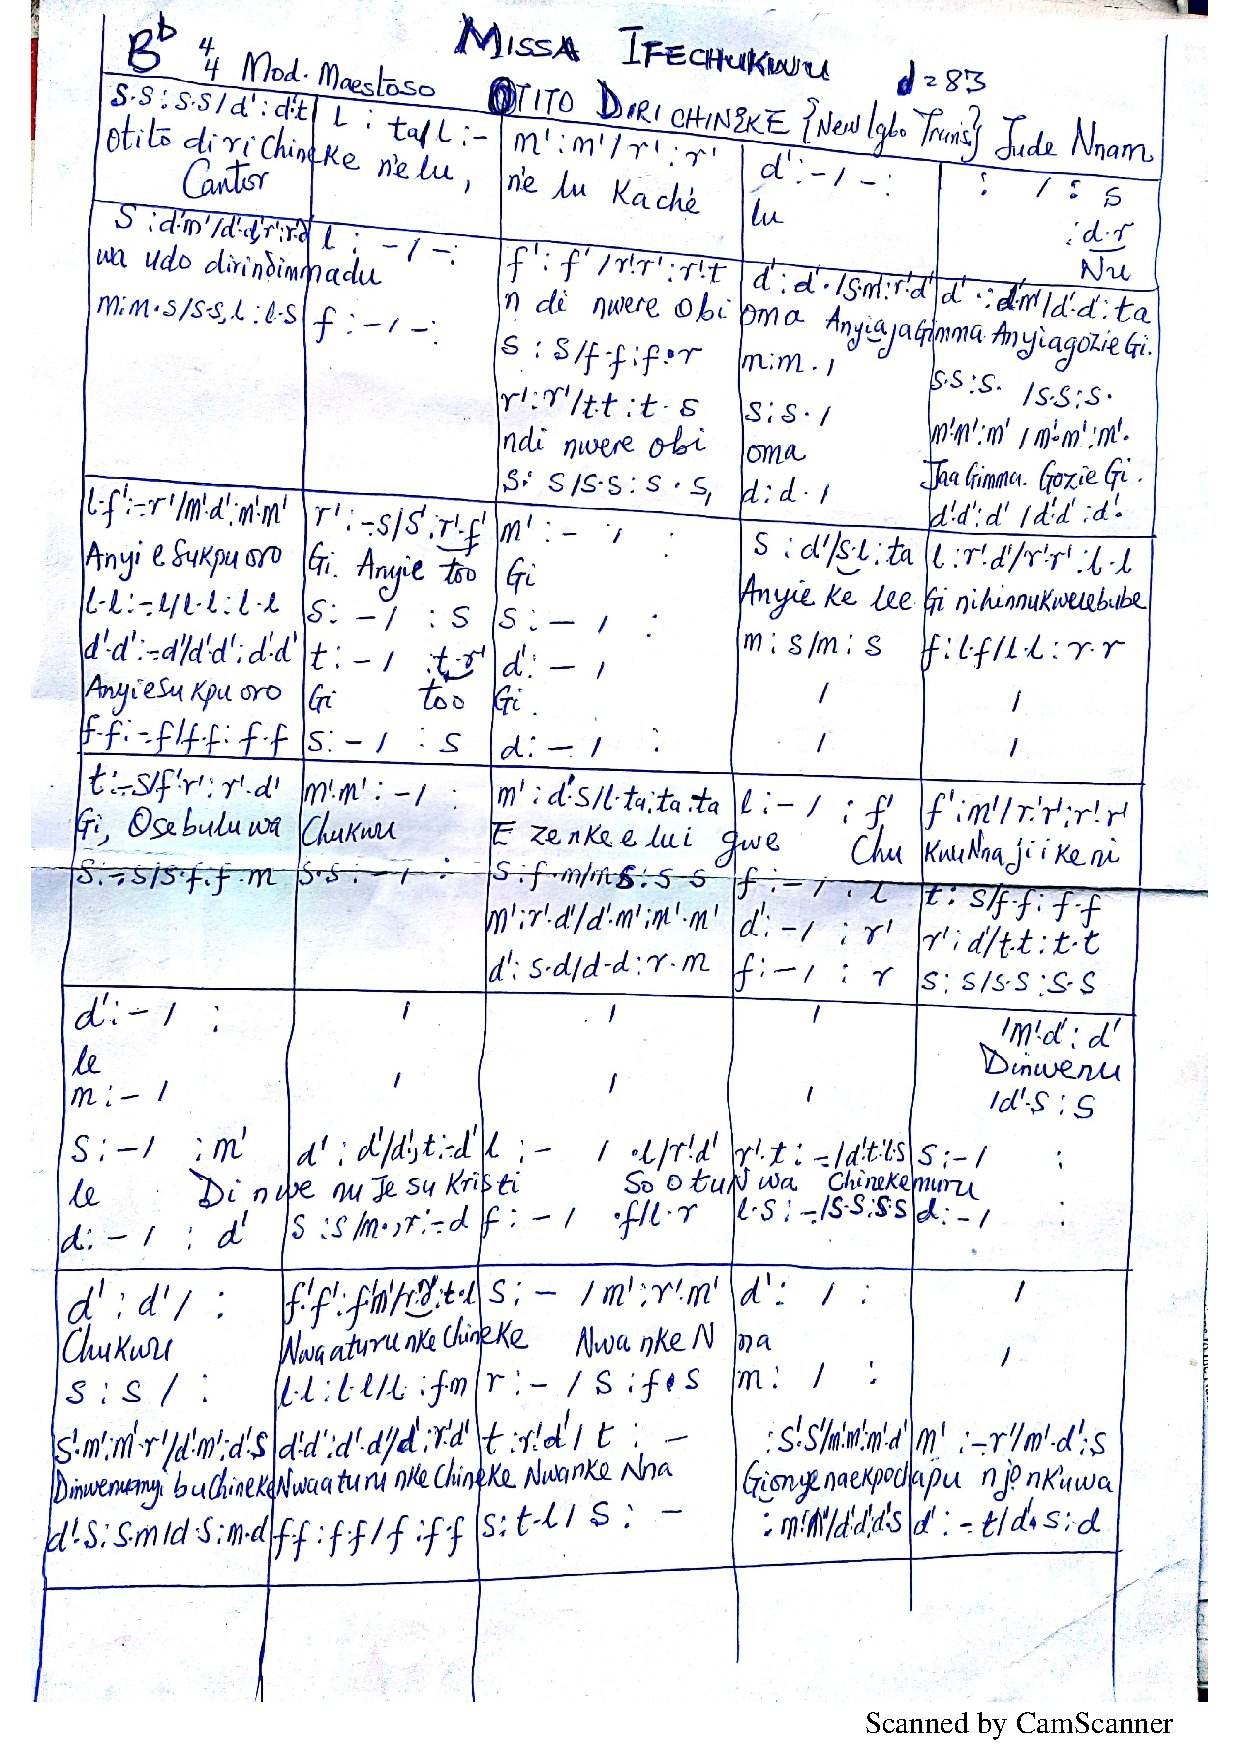 MISSA IFECHUKWU
Bb 4/4 Mod. Maestoso d=83
OTITO DIRI CHINEKE {New Igbo Trans} Jude Nnam
s.s : s.s / d' : d'.t | l : ta/l : - | m' : m' / r' : r' | d' : - / - : | : / : s
Otito diri Chineke n'e lu, n'e lu Kachè lu
Cantor
: d.r
Nu
s : d'.m' / d'.d',r' : r'.d | l : - / - : | f' : f' / r'.r' : r'.t | d' : d'. / s.m' : r'.d' | d' . : d'.m' / d'.d' : ta
wa udo dirindimmadu n di nwere obi oma AnyiajaGimma. AnyiagozieGi.
m : m.s / s.s, l : l.s | f : - / - : | s : s / f.f : f.r | m : m. / | s.s : s. / s.s : s.
r' : r' / t.t : t.s | s : s. / | m'.m' : m' / m'.m' : m'.
ndi nwere obi oma JaaGimma. Gozie Gi.
s : s / s.s : s.s, | d : d. / | d'.d' : d' / d'.d' : d'.
l.f' : -.r' / m'.d' : m'.m' | r' : -.s / s' : r'.f' | m' : - / : | s : d' / s.l : ta | l : r'.d' / r'.r' : l.l
Anyi e sukpu oro Gi. Anyie too Gi Anyie ke lee Gi nihinnukwuebube
l.l : -.l / l.l : l.l | s : - / : s | s : - / : | m : s / m : s | f : l.f / l.l : r.r
d'.d' : -.d' / d'.d' : d'.d' | t : - / : t.r' | d' : - / | / | /
Anyiesukpuoro Gi too Gi.
f.f : -.f / f.f : f.f | s : - / : s | d : - / : | / | /
t : -.s / f'.r' : r'.d' | m'.m' : - / : | m' : d'.s / l.ta : ta.ta | l : - / : f' | f' : m' / r'.r' : r'.r'
Gi, Osebuluwa Chukwu E zenke e lui gwe Chu KwuNna ji i ke ni
s : -.s / s.f : f.m | s.s : - / : | s : f.m / m.s : s.s | f : - / : l | t : s / f.f : f.f
m' : r'.d' / d'.m' : m'.m' | d' : - / : r' | r' : d' / t.t : t.t
d' : s.d / d.d : r.m | f : - / : r | s : s / s.s : s.s
d' : - / : | / | / | / | / m'.d' : d'
le Dinwenu
m : - / | / | / | / | / d'.s : s
s : - / : m' | d' : d' / d', t : -.d' | l : - / .l / r'.d' | r'.t : - / d'.t : l.s | s : - / :
le Di nwe nu Je su Kristi So O tu Nwa Chinekemuru
d : - / : d' | s : s / m., r : -.d | f : - / .f / l.r | l.s : - / s.s : s.s | d : - / :
d' : d' / : | f'.f' : f'.m' / r'.d' : t.l | s : - / m' : r'.m' | d' : / : | /
Chukwu Nwaaturu nke Chineke Nwa nke N na
s : s / : | l.l : l.l / l : f.m | r : - / s : f.s | m : / : | /
s'.m' : m'.r' / d'.m' : d'.s | d'.d' : d'.d' / d' : r'.d' | t : r'.d' / t : - | : s.s / m'.m' : m'.d' | m' : -.r' / m'.d' : s
Dinwenuanyi buChineke Nwaaturu nke Chineke Nwanke Nna Gionyenaekpochapu njo nkuwa
d'.s : s.m / d.s : m.d | f.f : f.f / f : f.f | s : t.l / s : - | : m'.m' / d'.d' : d'.s | d' : -.t / d'.s : d
Scanned by CamScanner